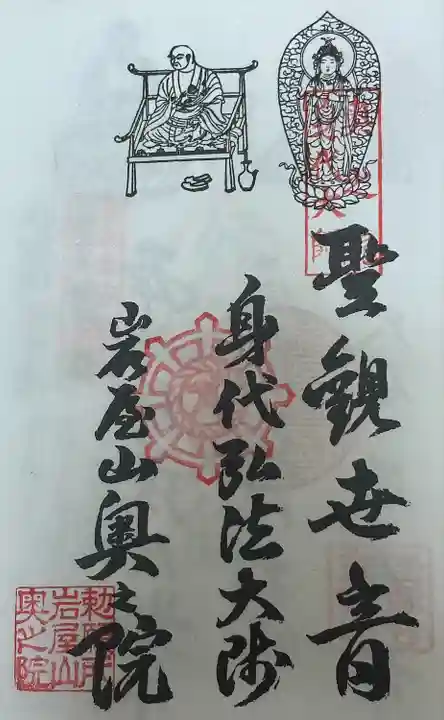 聖観世音
身代弘法大师
岩屋山奥之院
岩屋山
奥之院